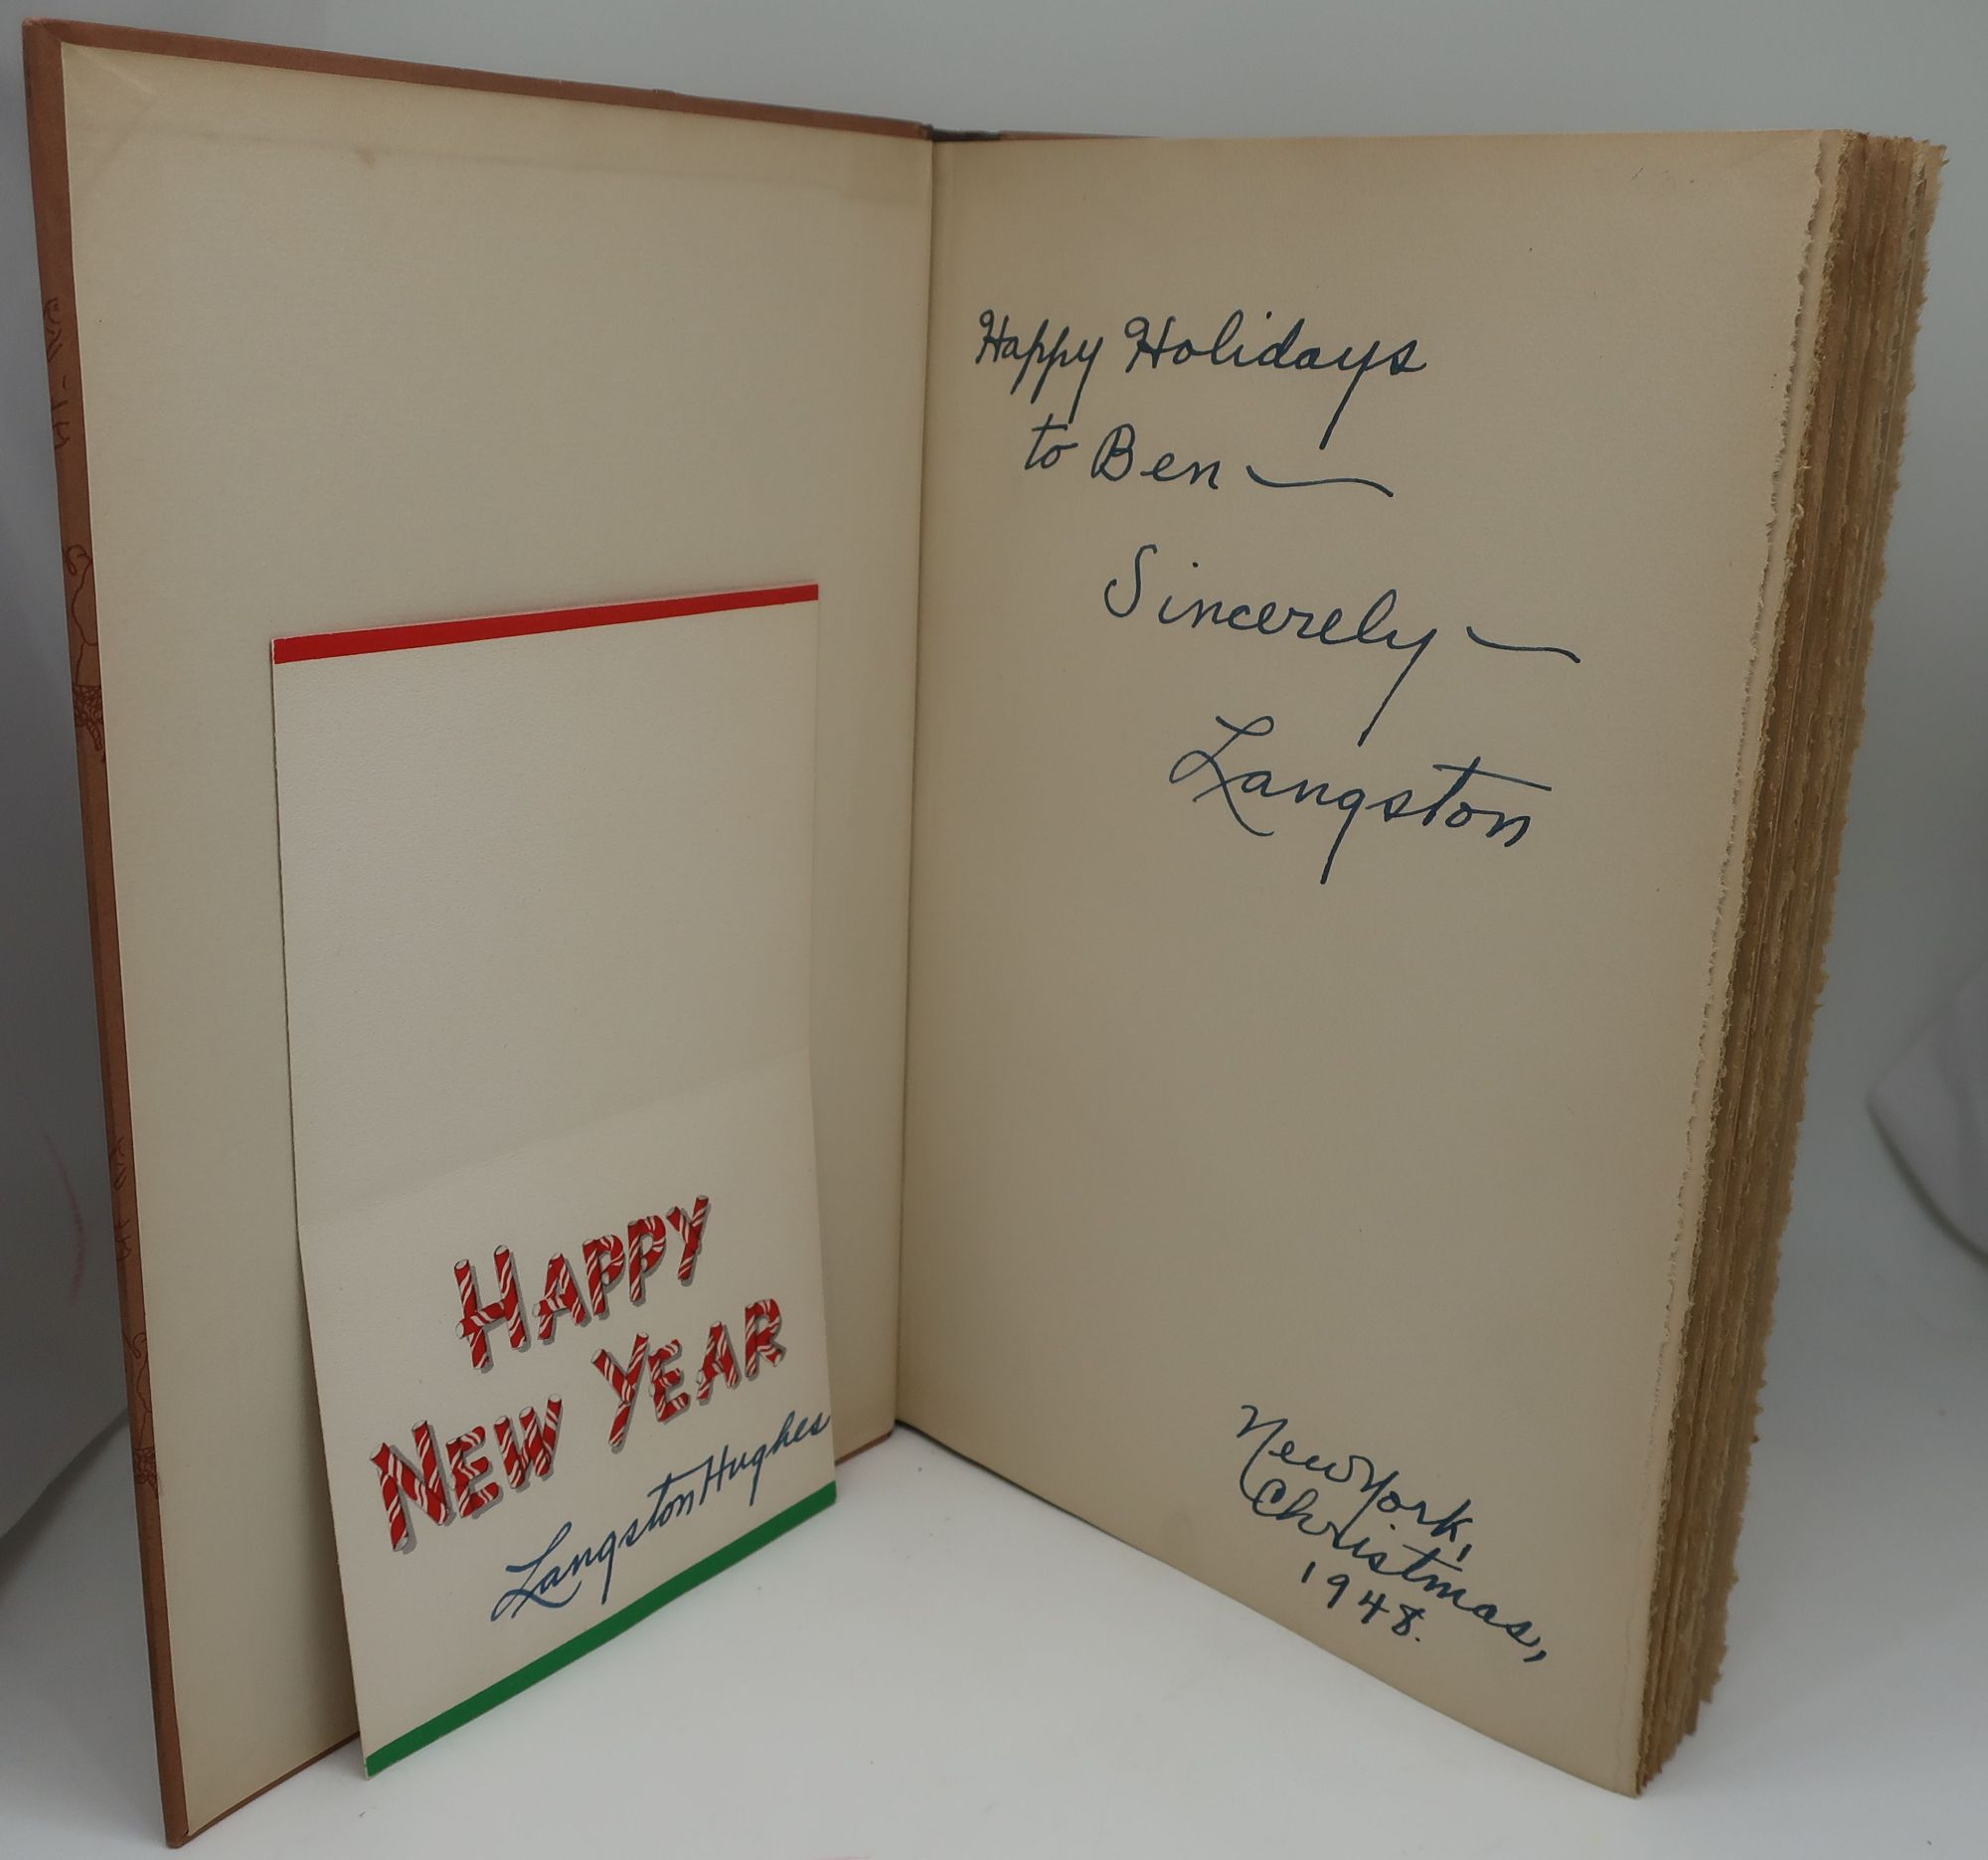 HAPPY
NEW YEAR
Langston Hughes
Happy Holidays
to Ben —
Sincerely —
Langston
New York,
Christmas,
1948.